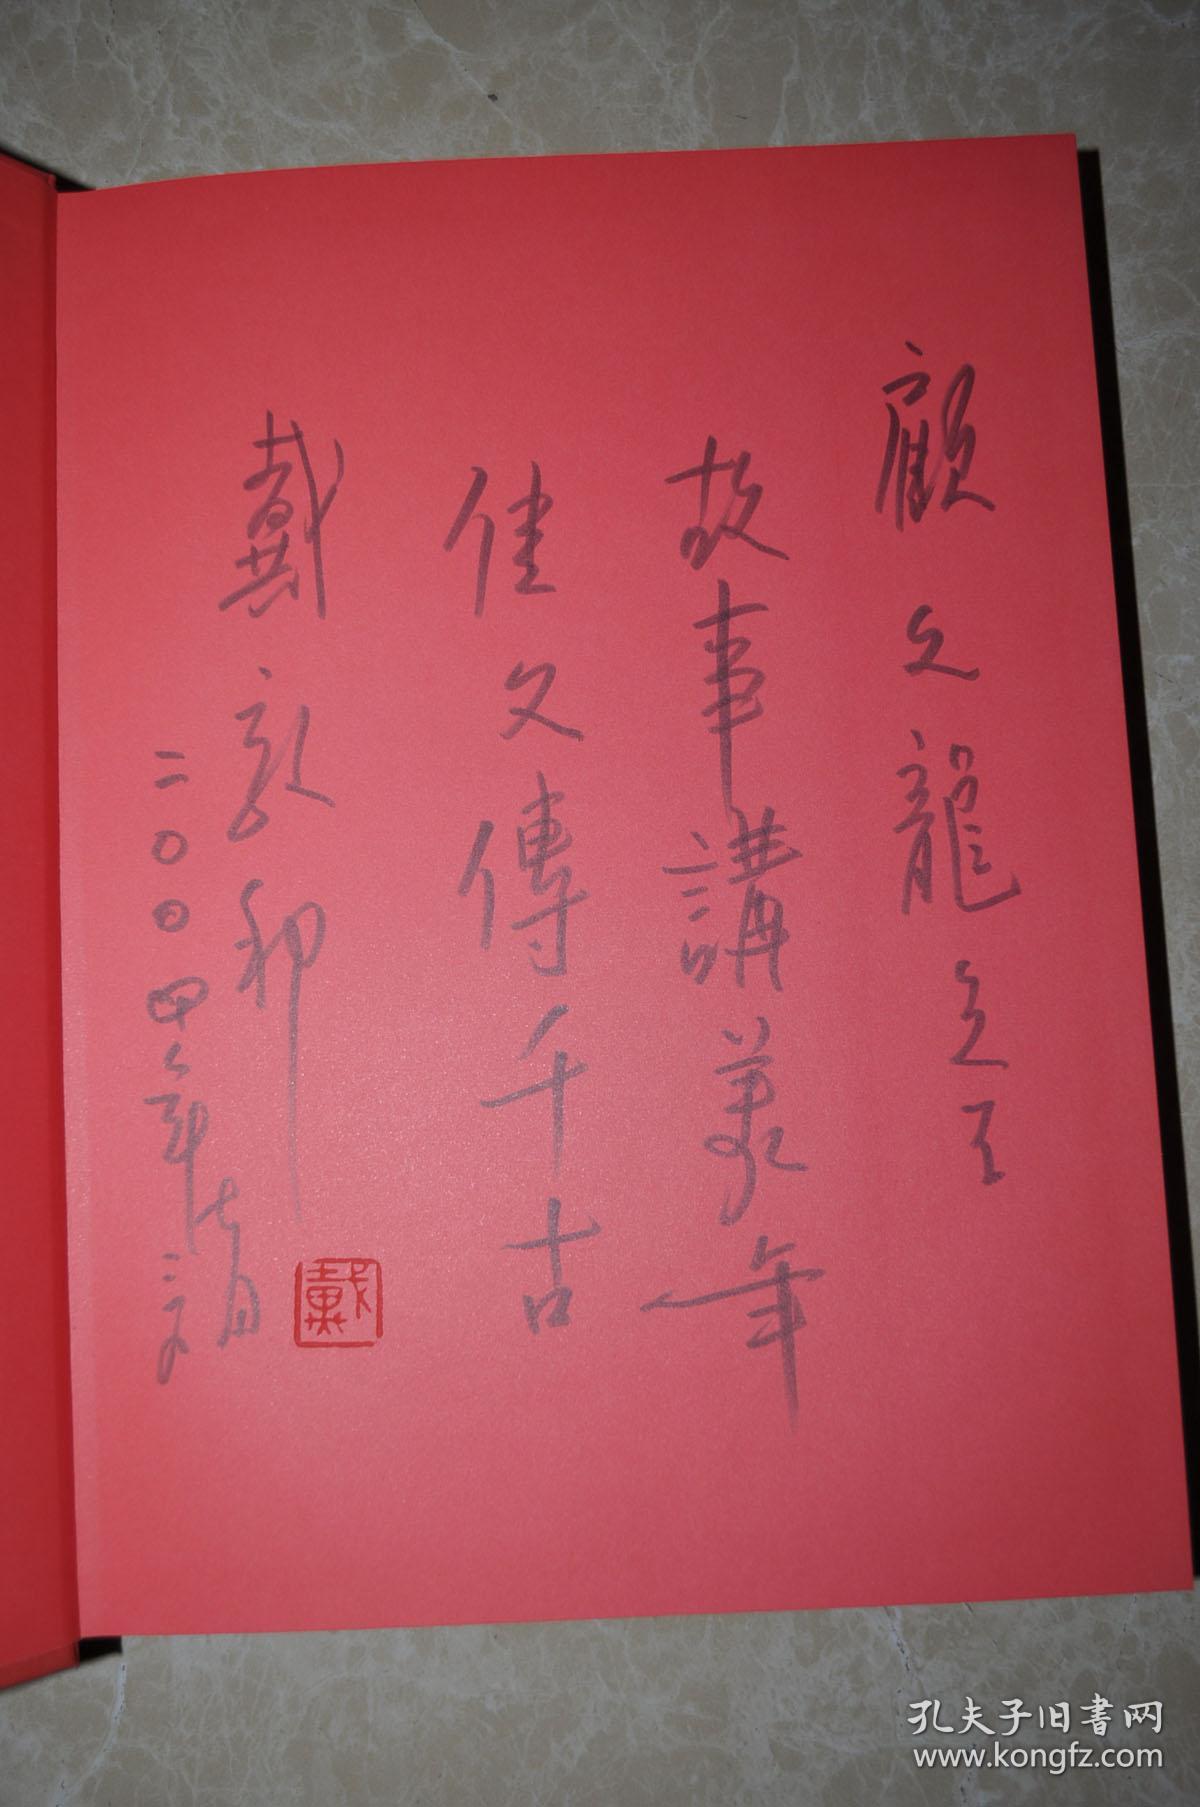 顧文龍先生
故事講美年
佳文傳千古
戴敦邦
二〇〇四年清明
戴
孔夫子旧書网
www.kongfz.com